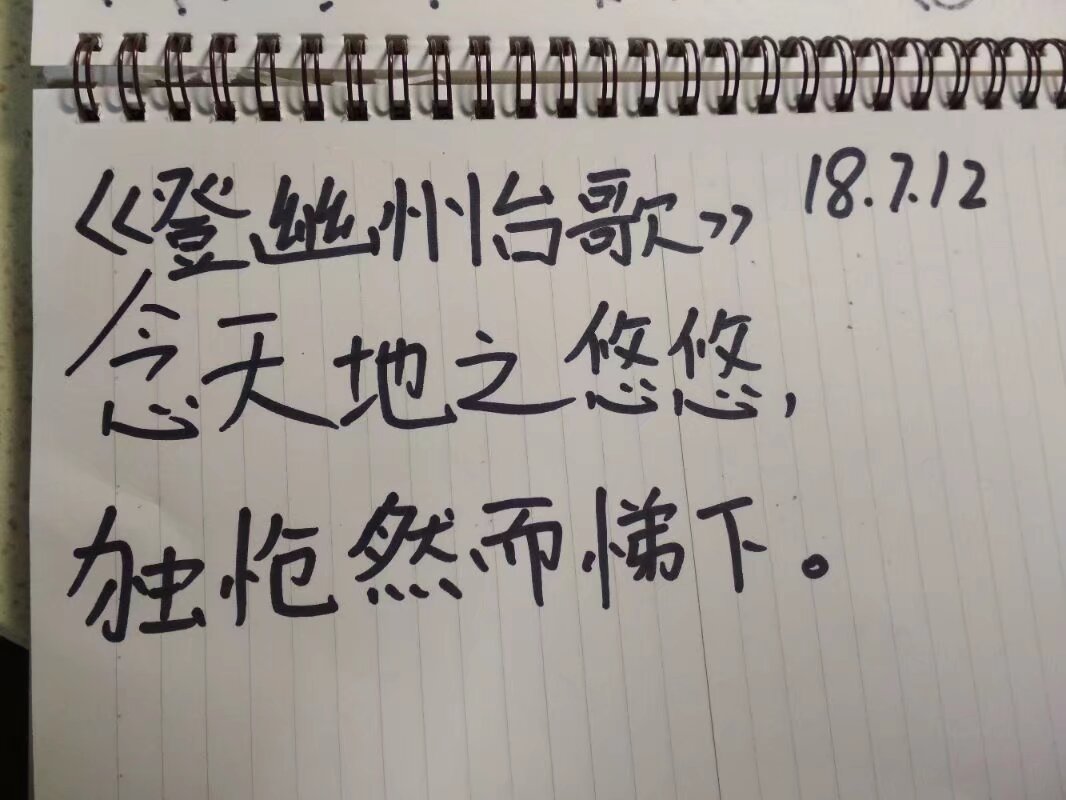 《登幽州怡歌》 18.7.12
念天地之悠悠,
独怆然而悌下。